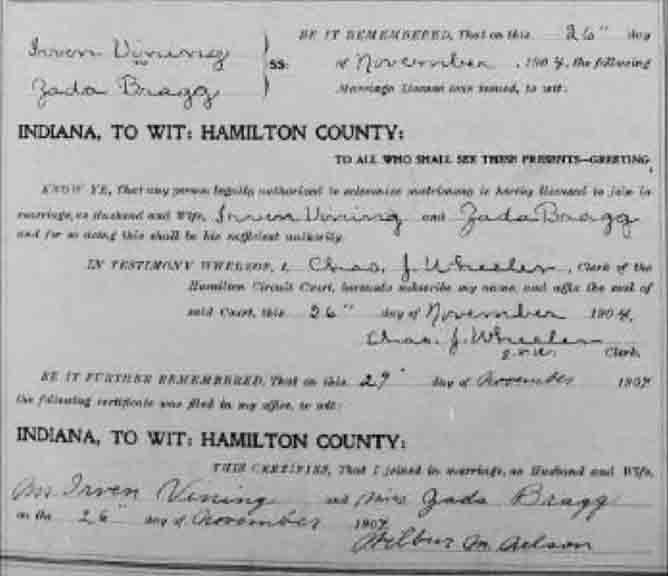 BE IT REMEMBERED, That on this 26" day
Irven Vining
of November, 1904, the following
SS:
Zada Bragg
Marriage License was issued, to wit:
INDIANA, TO WIT: HAMILTON COUNTY:
TO ALL WHO SHALL SEE THESE PRESENTS—GREETING,
KNOW YE, That any person legally authorized to solemnize matrimony is hereby licensed to join in
marriage, as Husband and Wife, Irven Vining and Zada Bragg
and for so doing this shall be his sufficient authority.
IN TESTIMONY WHEREOF, I, Chas. J. Wheeler, Clerk of the
Hamilton Circuit Court, hereunto subscribe my name, and affix the seal of
said Court, this 26" day of November 1904,
Chas. J. Wheeler
Clerk.
BE IT FURTHER REMEMBERED, That on this 29" day of November 1904
the following certificate was filed in my office, to wit:
INDIANA, TO WIT: HAMILTON COUNTY:
THIS CERTIFIES, That I joined in marriage, as Husband and Wife,
Mr Irven Vining and Miss Zada Bragg
on the 26" day of November 1904
Wilbur M. Nelson